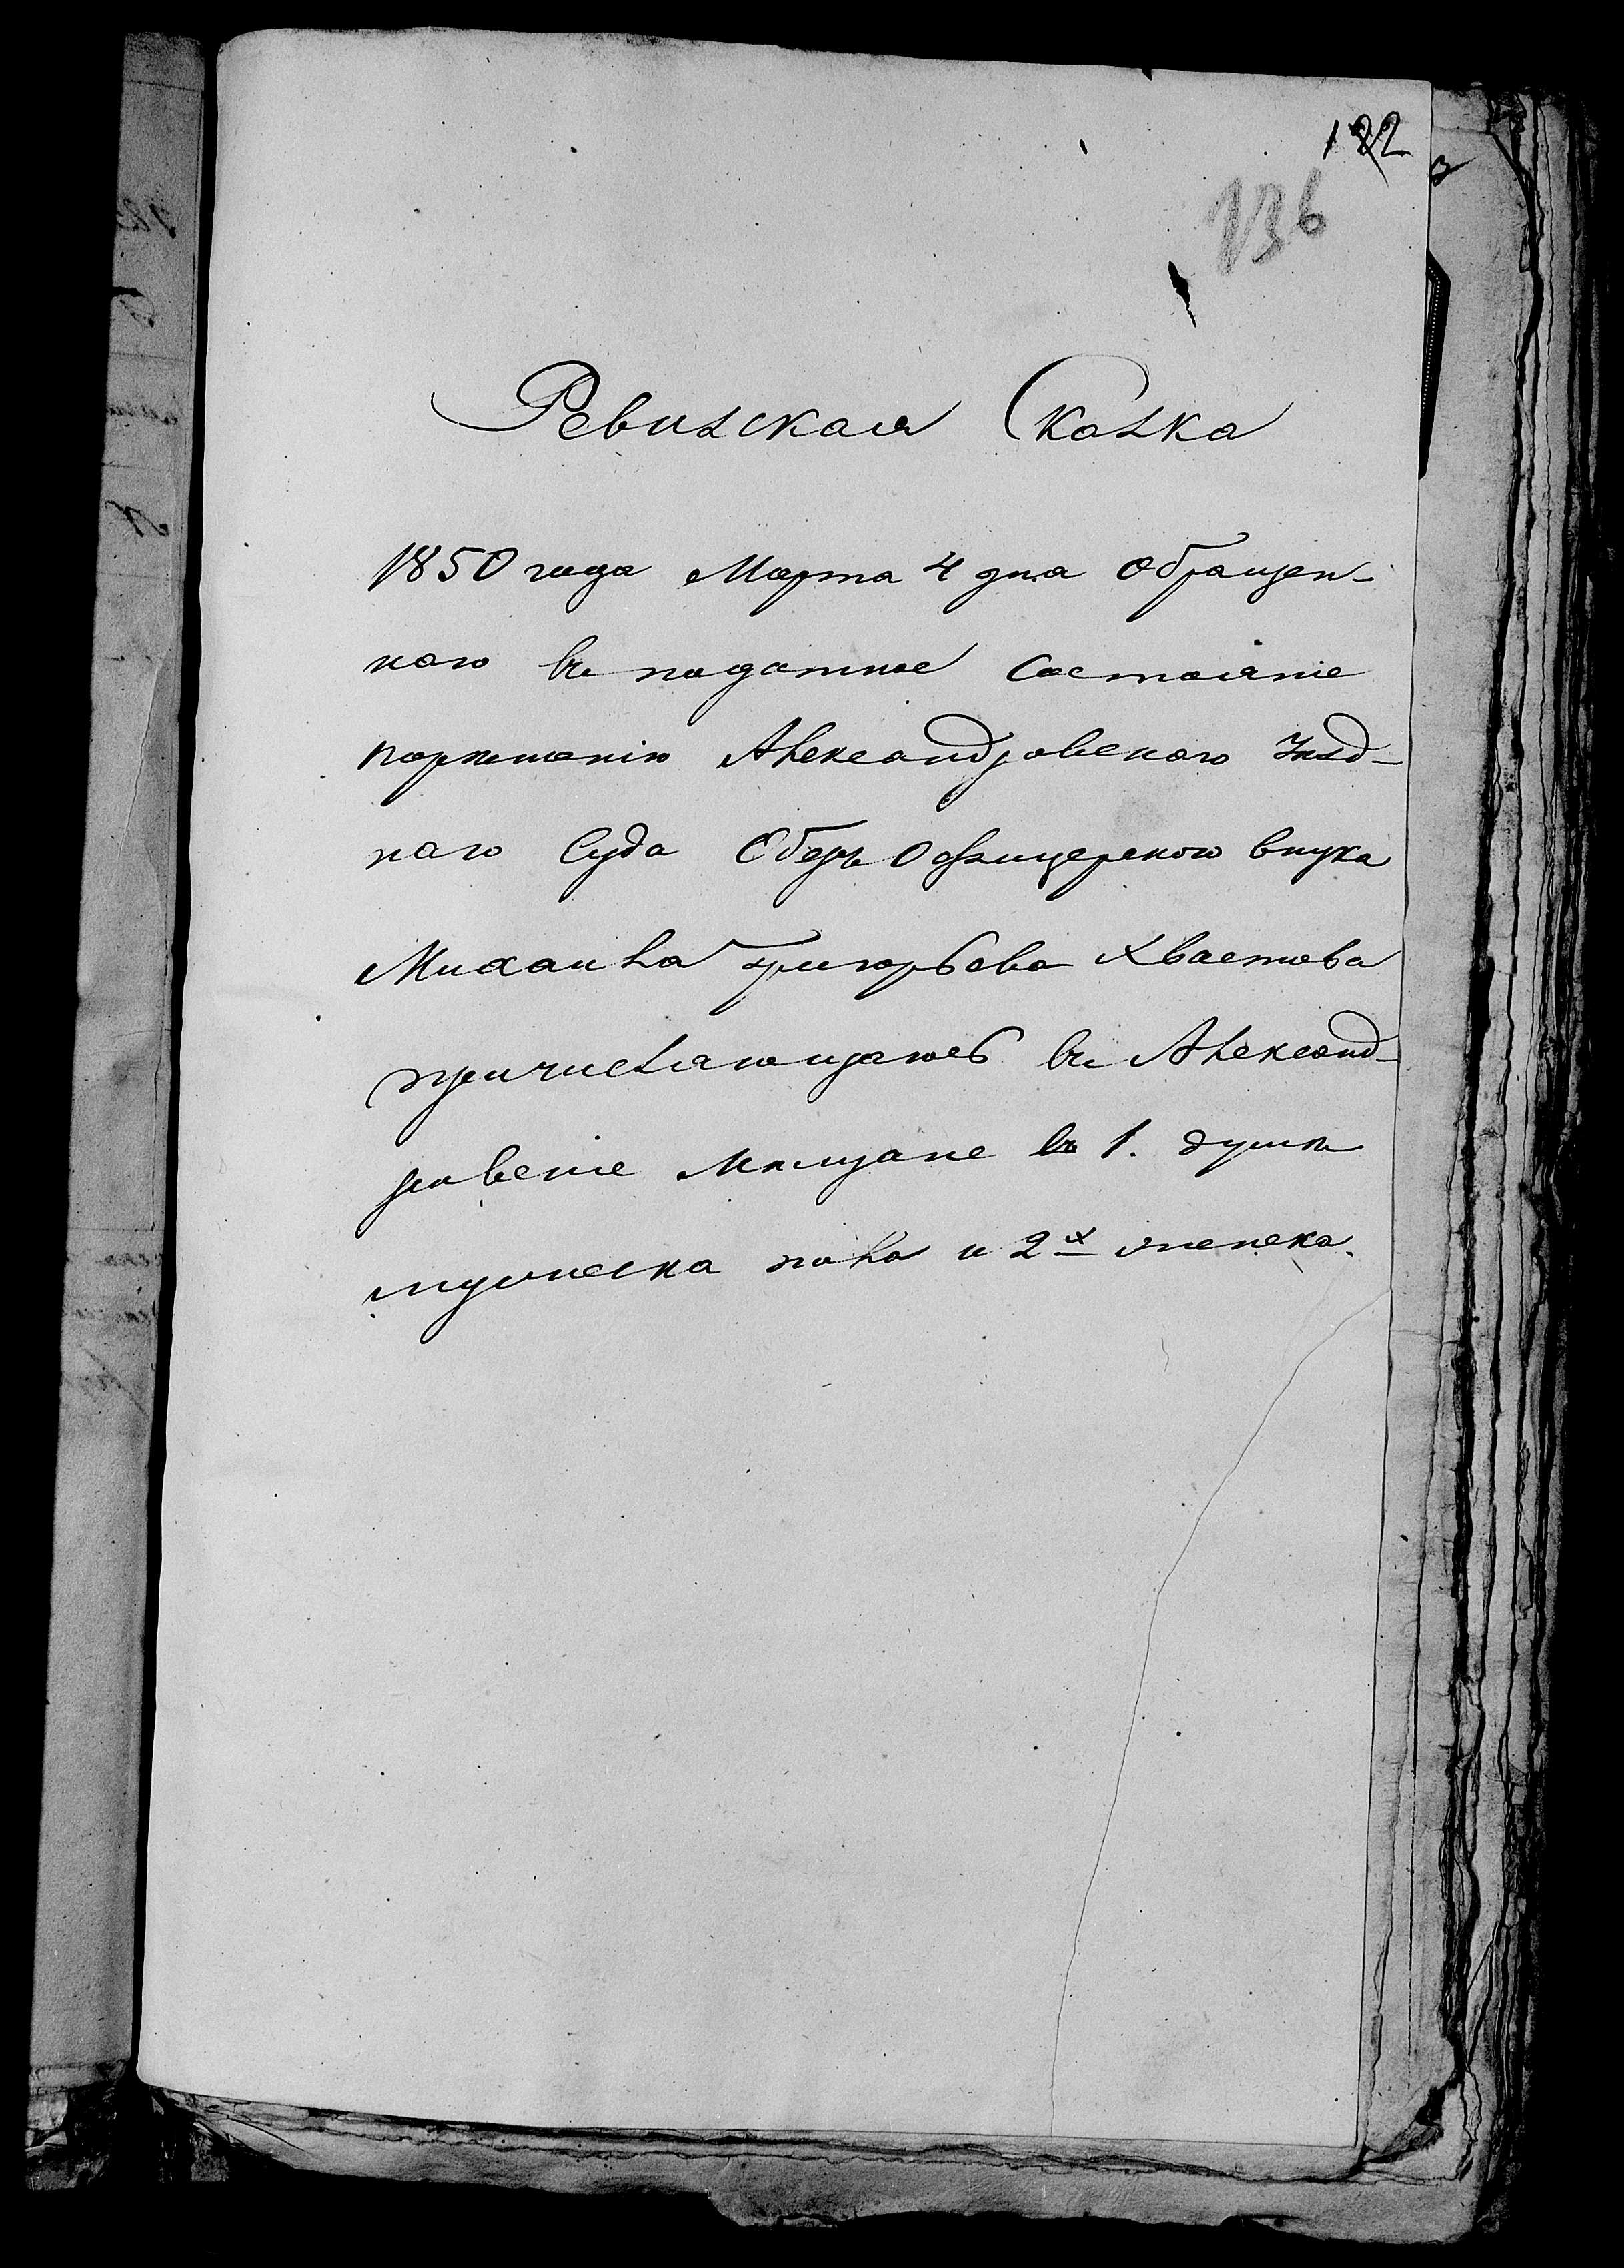 182
136
Ревизская Сказка
1850 года Марта 4 дня обращен-
наго въ податное состоянiе
порѣшенiю Александровскаго Уѣзд-
наго Суда Оберъ Офицерскаго внука
Михаила Григорьева Хвастова
причисляющагось въ Александ-
ровскiе Мѣщане въ 1. душѣ
мужеска пола и 2х женска.